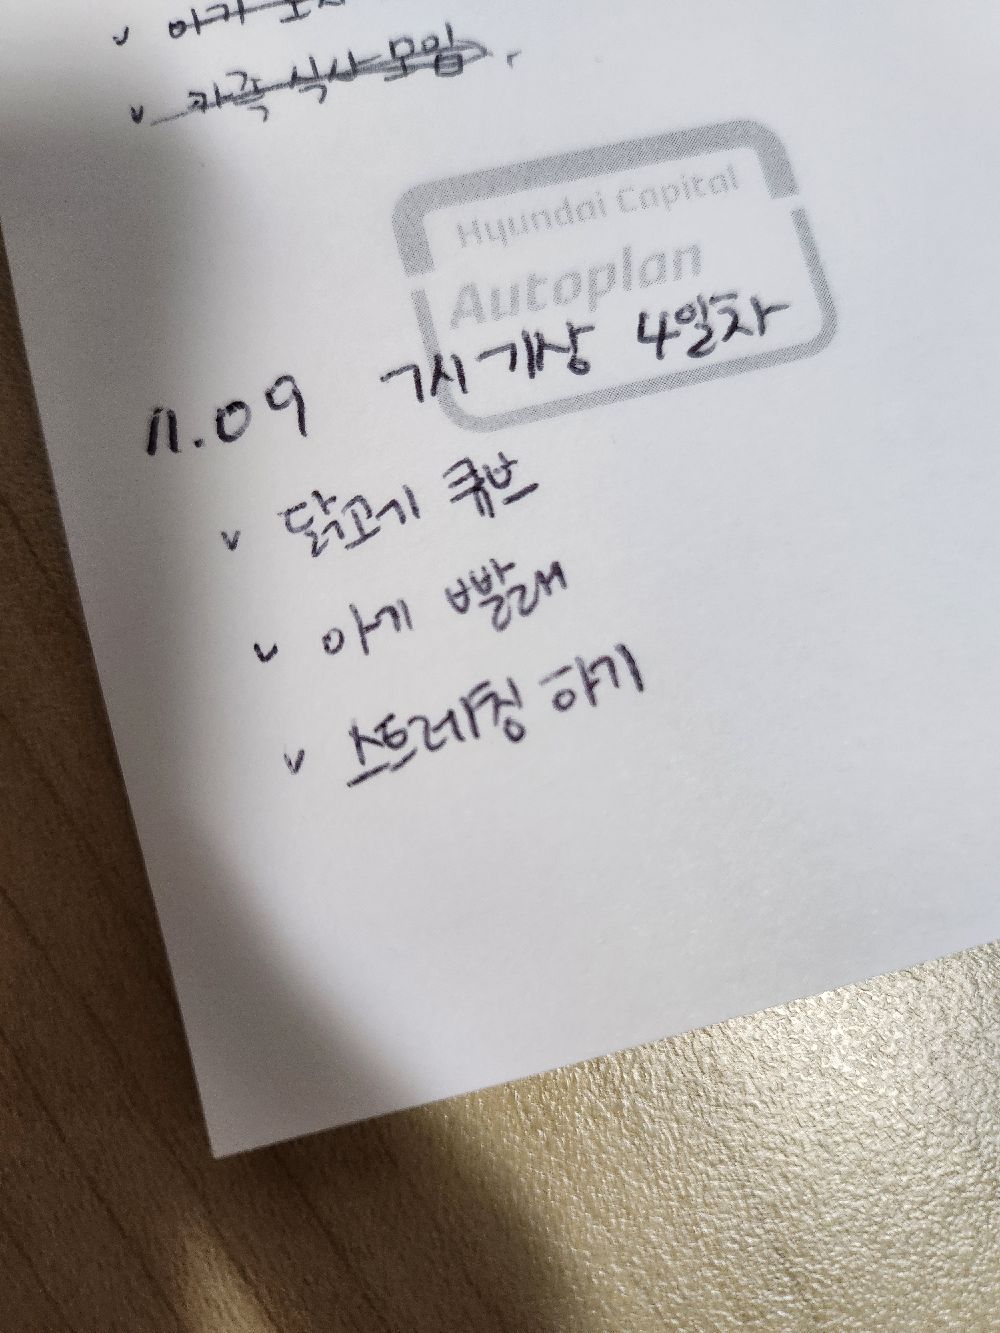 v 아기
v 가족 식사 모임.
Hyundai Capital
Autoplan
11.09 7시 기상 4일차
v 닭고기 큐브
v 아기 빨래
v 스트레칭 하기